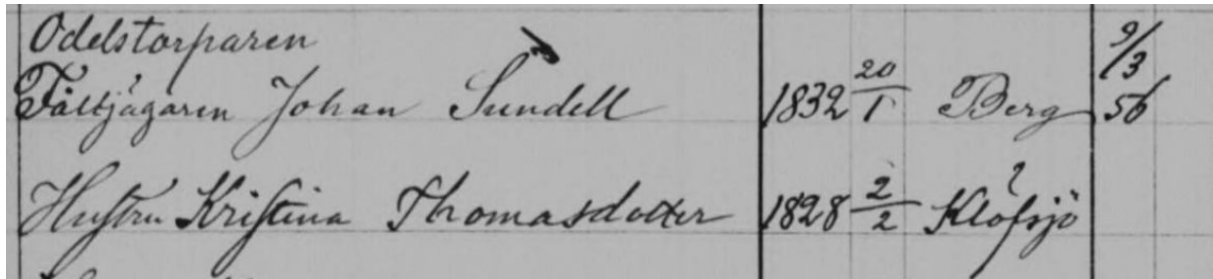 Odelstorparen 9/3
Fältjägaren Johan Sundell 1832 20/1 Berg 56
Hustru Kristina Thomasdotter 1828 2/2 Klöfsjö